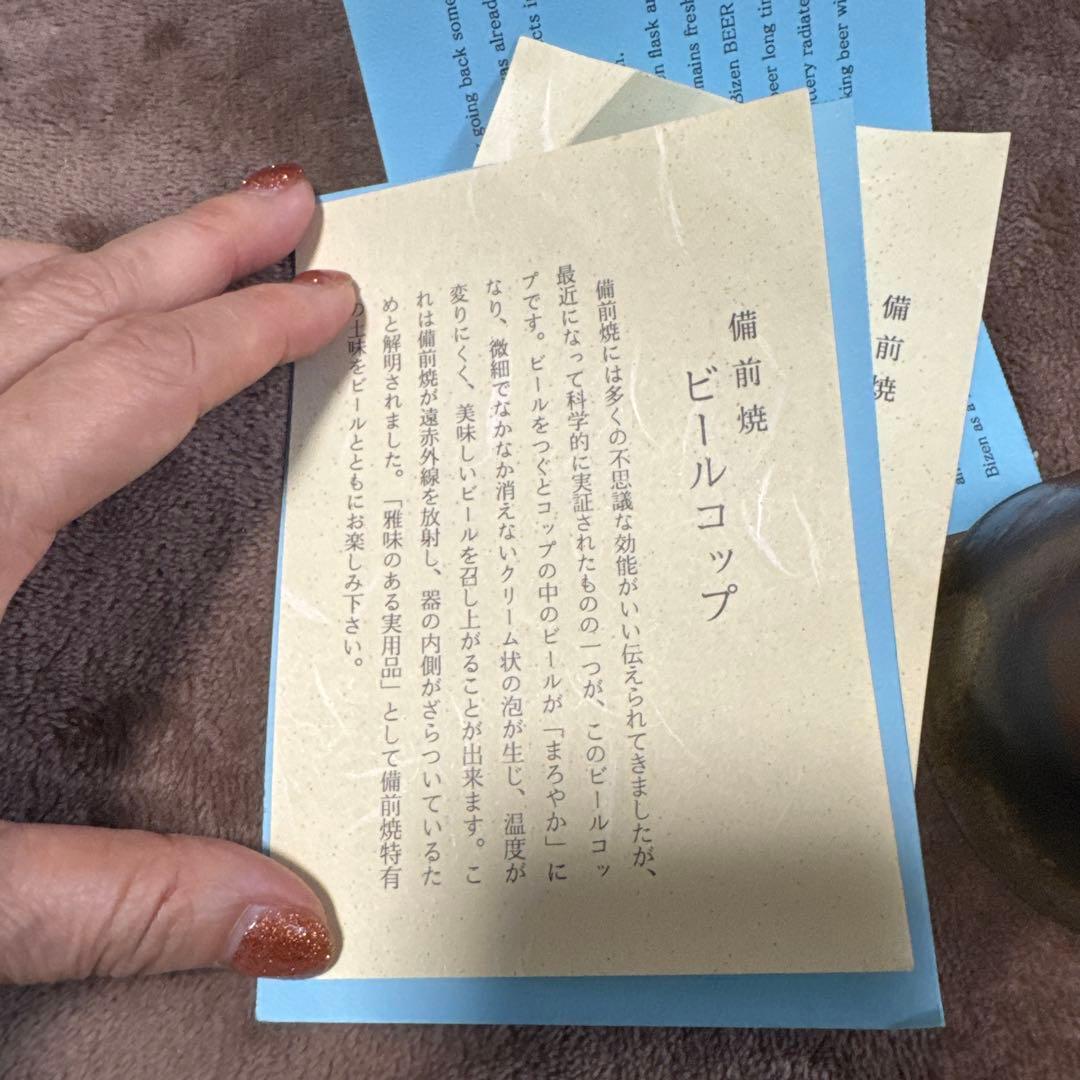 備前焼
ビールコップ
備前焼には多くの不思議な効能がいい伝えられてきましたが、
最近になって科学的に実証されたものの一つが、このビールコッ
プです。ビールをつぐとコップの中のビールが「まろやか」に
なり、微細でなかなか消えないクリーム状の泡が生じ、温度が
変りにくく、美味しいビールを召し上がることが出来ます。こ
れは備前焼が遠赤外線を放射し、器の内側がざらついているた
めと解明されました。「雅味のある実用品」として備前焼特有
の土味をビールとともにお楽しみ下さい。
備前焼
going back some
as already
cts i
n flask an
mains fresh
Bizen BEER
beer long tim
ttery radiate
king beer wi
Bizen as a